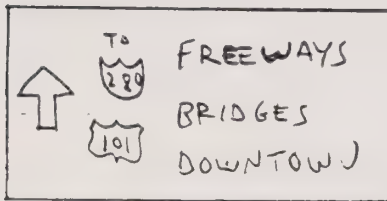 TO
280
101
FREEWAYS
BRIDGES
DOWNTOWN